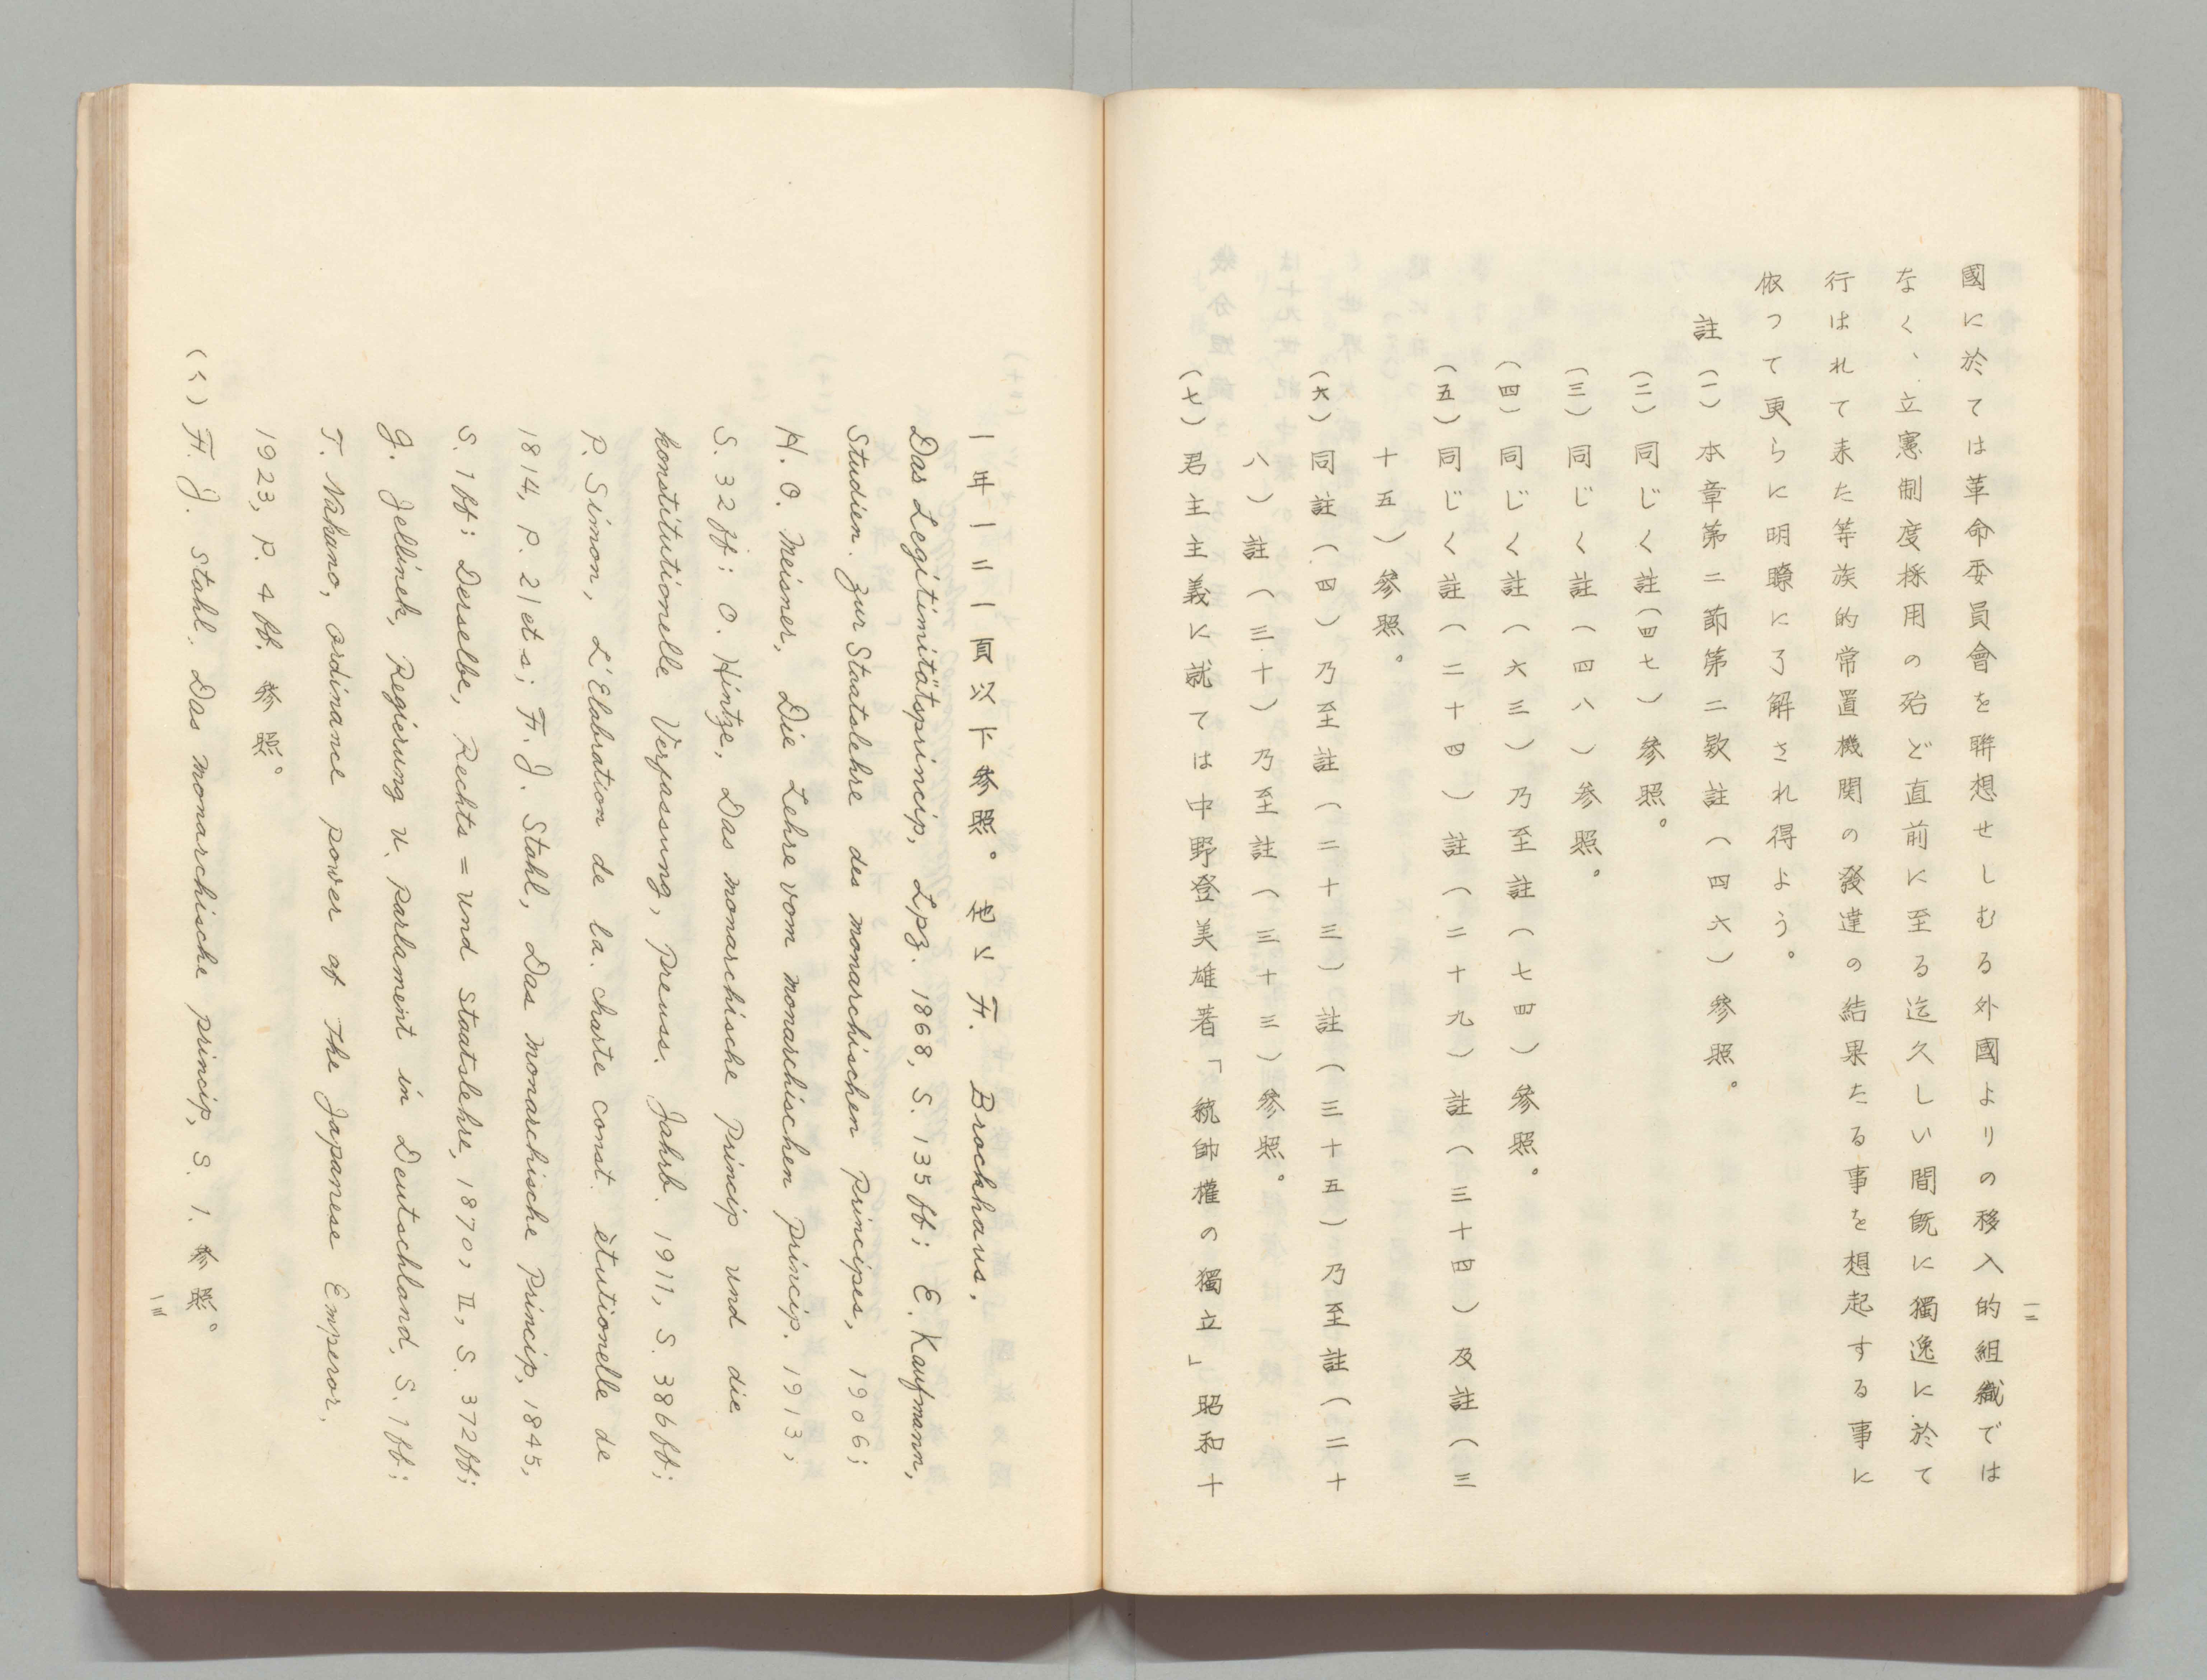 國に於ては革命委員會を聯想せしむる外國よりの移入的組織では
なく、立憲制度採用の殆ど直前に至る迄久しい間既に獨逸に於て
行はれて来た等族的常置機関の發達の結果たる事を想起する事に
依って更らに明瞭に了解され得よう。
註(一)本章第二節第二欵註(四六)參照。
(二)同じく註(四七)參照。
(三)同じく註(四八)參照。
(四)同じく註(六三)乃至註(七四)參照。
(五)同じく註(二十四)註(二十九)註(三十四)及註(三
十五)參照。
(六)同註(四)乃至註(二十三)註(三十五)乃至註(二十
八)註(三十)乃至註(三十三)參照。
(七)君主主義に就ては中野登美雄著「統帥權の獨立」昭和十
一二
一年一二一頁以下參照。他は F. Brockhaus,
Das Legitimitätsprincip, Lpz. 1868, S. 135 ff; E. Kaufmann,
Studien zur Staatslehre des monarchischen Principes, 1906;
H. O. Meisner, Die Lehre vom monarchischen Princip. 1913;
S. 32 ff; O. Hintze, Das monarchische Princip und die
konstitutionelle Verfassung, Preuss. Jahrb. 1911, S. 386 ff;
P. Simon, L'Elabration de la charte const. ètutionelle de
1814, P. 21 et s; F. J. Stahl, Das monarchische Princip, 1845,
S. 1 ff; Derselbe, Rechts = und Staatslehre, 1870, II, S. 372 ff;
G. Jellinek, Regierung u. Parlament in Deutschland, S. 1 ff;
T. Nakano, Ordinance power of the Japanese Emperor.
1923, P. 4 ff. 參照。
(八) F. J. Stahl. Das monarchische princip, S. 1. 參照。
一三